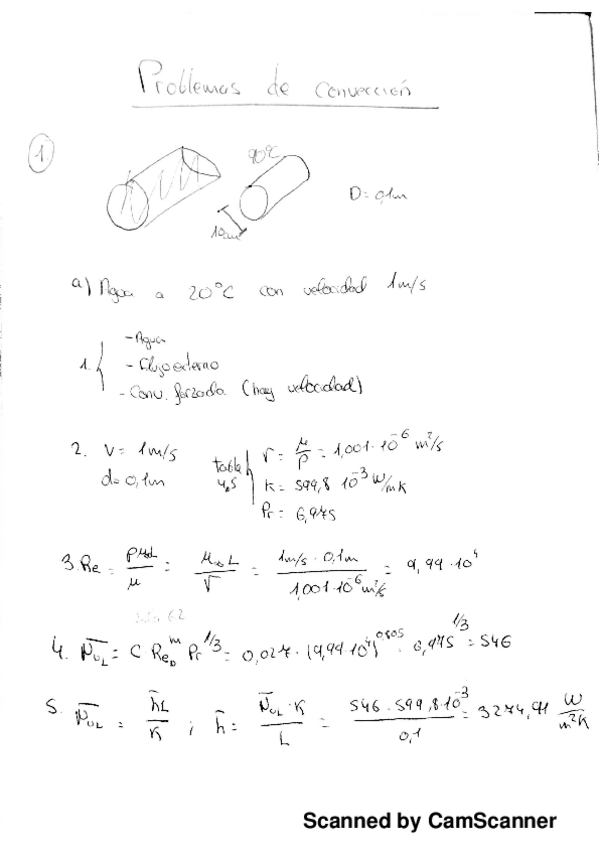 Problemas de convección
1
90ºC
D= 0,1m
10cm
a) Agua a 20ºC con velocidad 1m/s
1. { - Agua
- Flujo externo
- Conv. forzada (hay velocidad)
2. V= 1m/s
d= 0,1m
tabla 4.5
ν = μ/ρ = 1,001·10⁻⁶ m²/s
K= 599,8 10⁻³ W/mK
Pr= 6,975
3. Re = ρu∞L/μ = u∞L/ν = 1m/s · 0,1m / 1,001·10⁻⁶ m²/s = 9,99·10⁴
4. N̄u_L = C Re_D^m Pr^1/3 = 0,027·(9,99·10⁴)^0,805 · 6,975^1/3 = 546
5. N̄u_L = h̄L/K ; h̄ = N̄u_L·K/L = 546·599,8·10⁻³/0,1 = 3274,91 W/m²K
Scanned by CamScanner